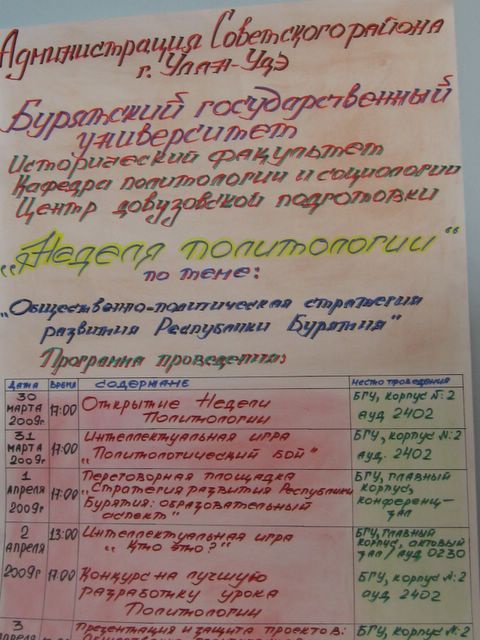 Администрация Советского района
г. Улан-Удэ
Бурятский государственный
университет
Исторический факультет
Кафедра политологии и социологии
Центр довузовской подготовки
„Неделя политологии“
по теме:
„Общественно-политическая стратегия
развития Республики Бурятия“
Программа проведения:
Дата Время Содержание Место проведения
30 марта 2009г 17:00 Открытие Недели Политологии БГУ, корпус №:2 ауд 2402
31 марта 2009г 17:00 Интеллектуальная игра „Политологический бой“ БГУ, корпус №:2 ауд. 2402
1 апреля 2009г 17:00 Переговорная площадка „Стратегия развития Республики Бурятия: образовательный аспект“ БГУ, главный корпус, конференц-зал
2 апреля 2009г 13:00 Интеллектуальная игра „Кто это?“ БГУ, главный корпус, актовый зал/ауд 0230
17:00 Конкурс на лучшую разработку урока Политологии БГУ, корпус №:2 ауд 2402
3 апреля Презентация и защита проектов: БГУ, корпус №:2